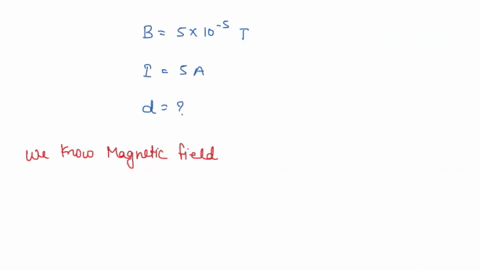 B = 5 × 10⁻⁵ T
I = 5 A
d = ?
We know Magnetic field